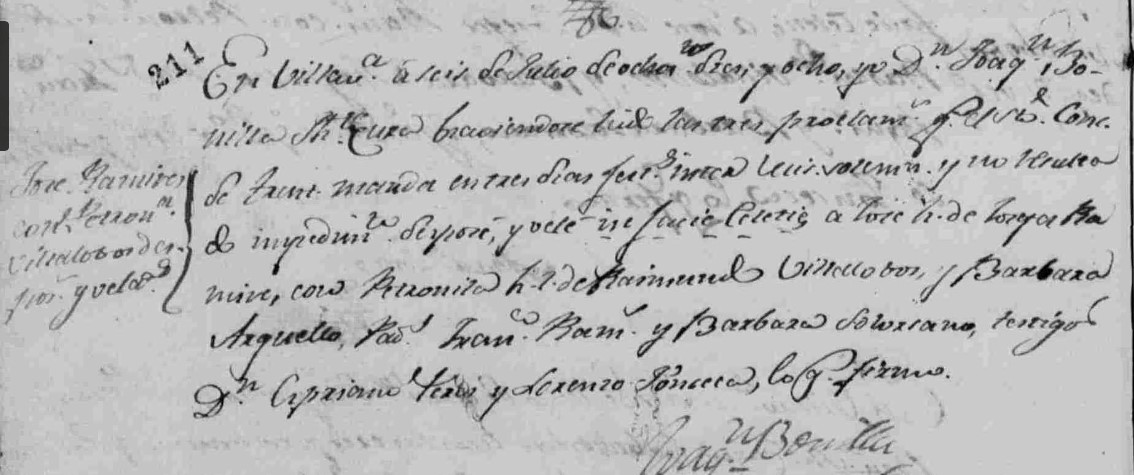 211
En Villan.ª à seis de Julio de ocho.s dies, y ocho, yo D.n Joaq.n Bo-
nilla Th.e Cura haviendose leido las tres proclam.s q.e el S.to Conc.
de Trent. manda en tres dias fest.s inter Miss. solemn. y no resulta
do impedim.to desposé, y velé in facie Eclesiæ a José h. de Jorga Ra
mires, con Petronila h. l. de Raimundo Villalobos, y Barbara
Arguello, Pad.s Fran.co Ram.s y Barbara Solorsano, testigos
D.n Cipriano y Lorenzo Fonseca, lo q.e firmo.
Joaq.n Bonilla
Jose Ramires
con Petron.ª
Villalobos des-
pos. y velad.s